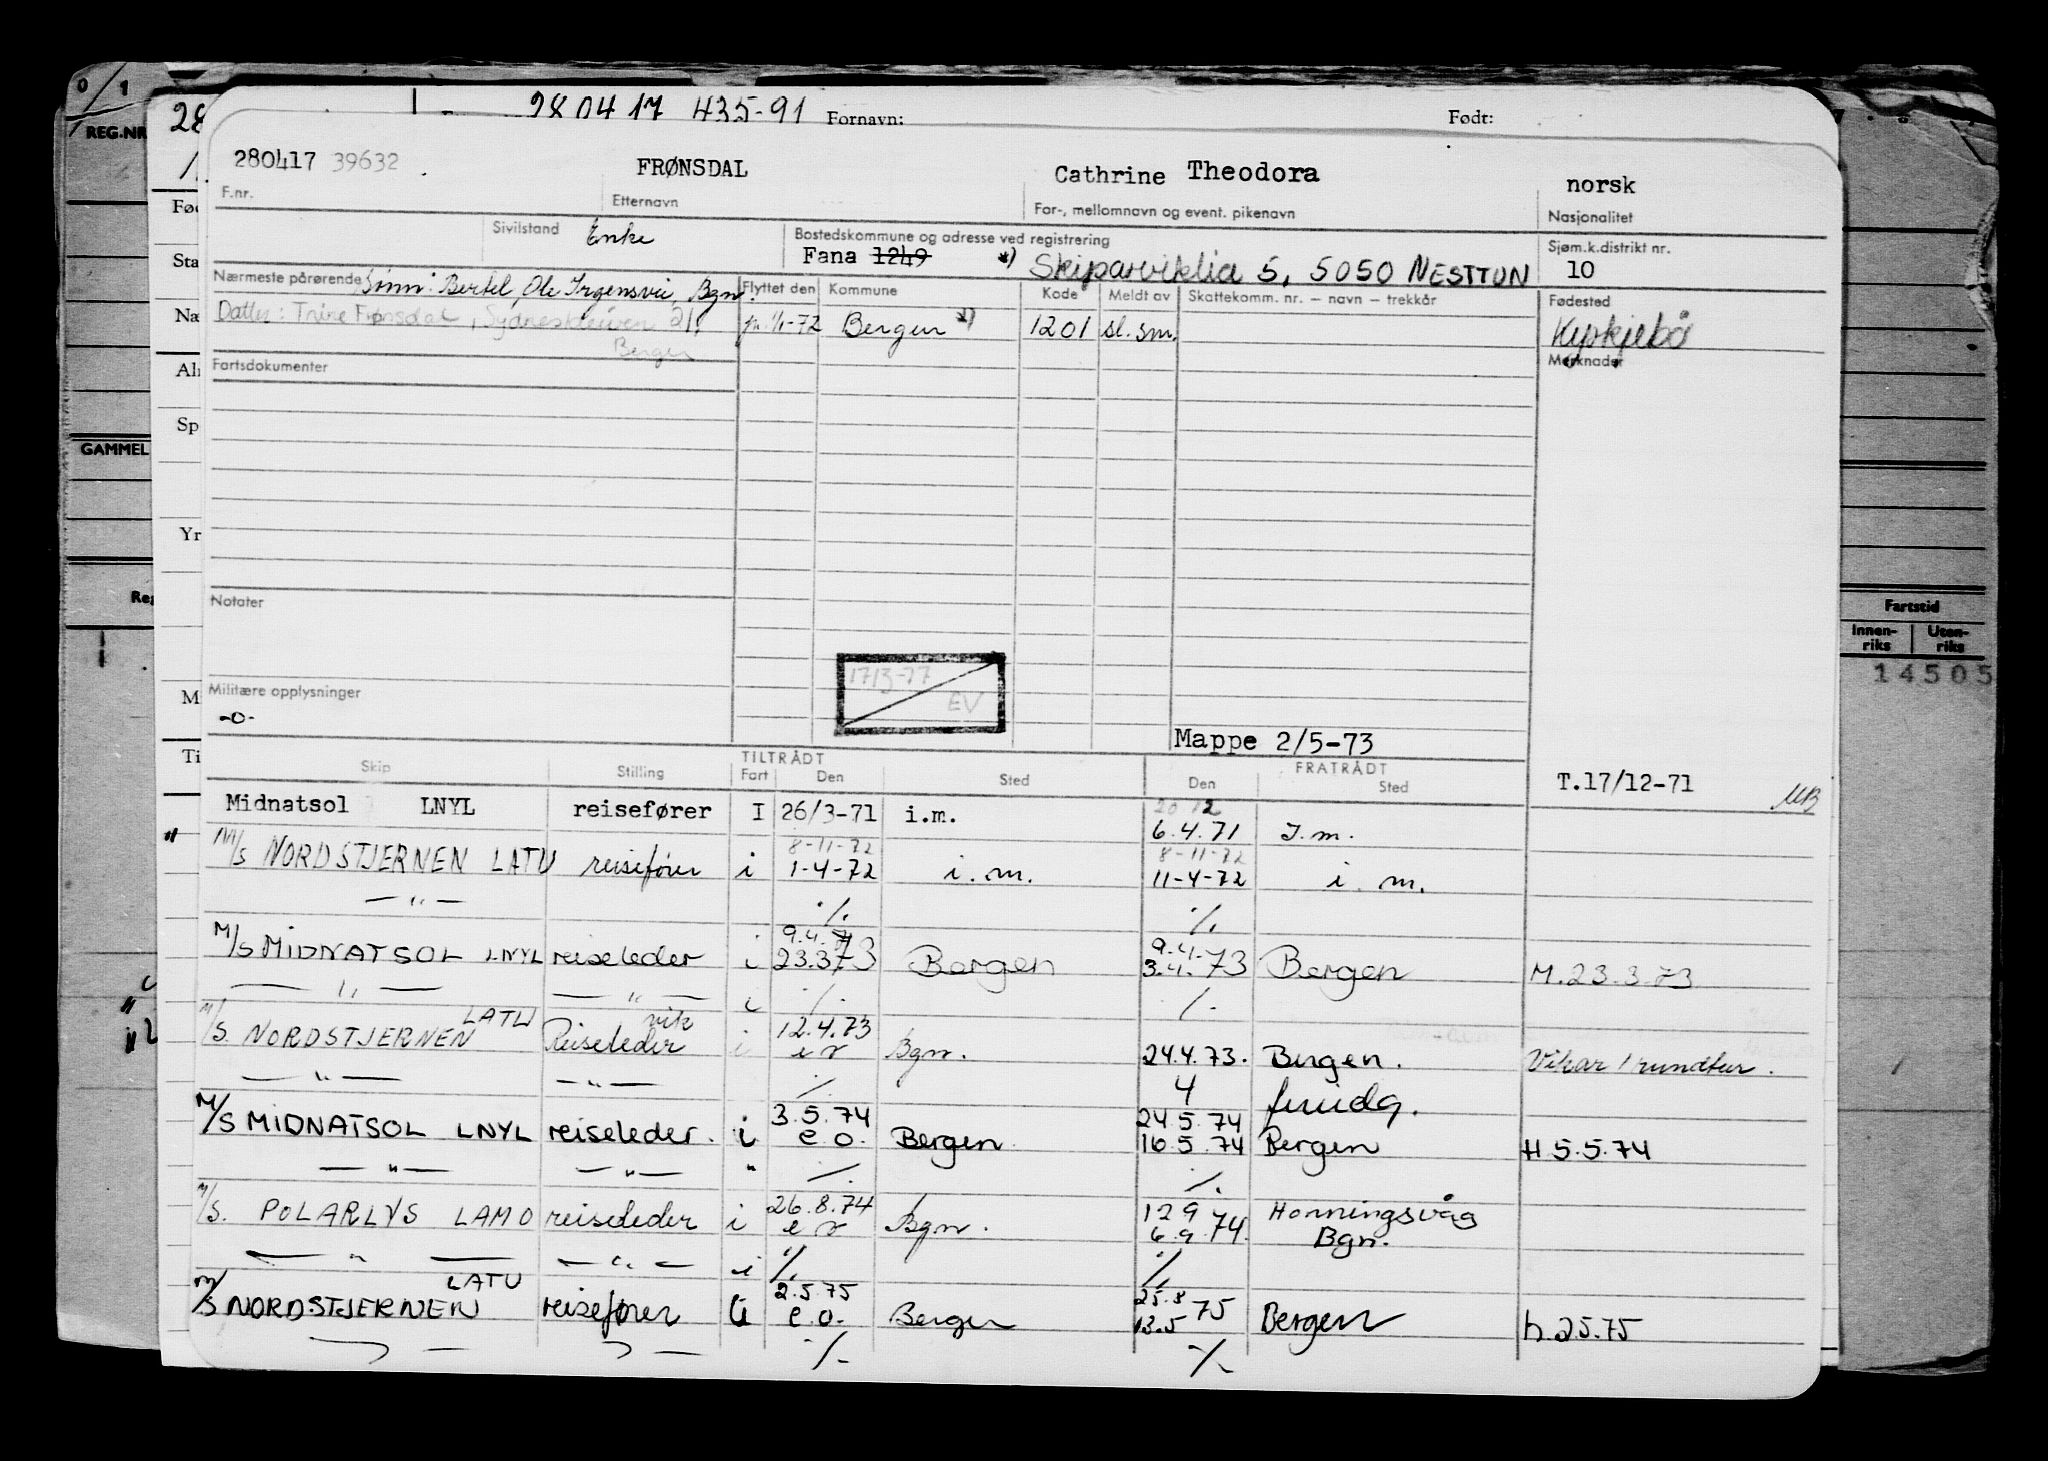 0/1
REG.NR
28 28 04 17 435-91 Fornavn: Født:
280417 39632 FRØNSDAL Cathrine Theodora norsk
F.nr. Etternavn For-, mellomnavn og event. pikenavn Nasjonalitet
Sivilstand Enke Bostedskommune og adresse ved registrering Sjøm.k.distrikt nr.
Fana 1249 *) Skiparviklia 5, 5050 NESTTUN 10
Nærmeste pårørende Sønn: Bertel, Ole Irgensvei, Bgn. Flyttet den Kommune Kode Meldt av Skattekomm. nr. – navn – trekkår Fødested
Datter: Trine Frønsdal, Sydneskleiven 21, Bergen 1/1-72 Bergen *) 1201 sl. sm. Kyrkjebø
Fartsdokumenter Merknader
GAMMEL
Notater
Fartstid
Innen-riks Uten-riks
14505
17/3-77
EV
Militære opplysninger
-0-
Mappe 2/5-73
TILTRÅDT FRATRÅDT
Skip Stilling Fart Den Sted Den Sted T.17/12-71
Midnatsol LNYL reisefører I 26/3-71 i.m. 20 12 6.4.71 I.m.
" M/S NORDSTJERNEN LATU reisefører i 8-11-72 1-4-72 i.m. 8-11-72 11-4-72 i. m.
— " — ./. ./.
M/S MIDNATSOL LNYL reiseleder i 9.4.73 23.3.73 Bergen 9.4. 3.4.73 Bergen M.23.3.73
— " — — " — i ./. ./.
M/S. NORDSTJERNEN LATU Reiseleder vik i 12.4.73 e r Bgn. 24.4.73. Bergen. Vikar 1 rundtur.
— " — — " — ./. 4
M/S MIDNATSOL LNYL reiseleder. i 3.5.74 e o. Bergen 24.5.74 16.5.74 Bergen H 5.5.74
— " — — " — " ./. ./.
M/S. POLARLYS LAMO reiseleder i 26.8.74 e r Bgn. 12 9 6.9.74. Honningsvåg Bgn.
— " — — " — i ./. ./.
M/S NORDSTJERNEN LATU reisefører i 2.5.75 e.o. Bergen 25.8 13.5 75 Bergen h.25.75
— " — — " — ./. ./.